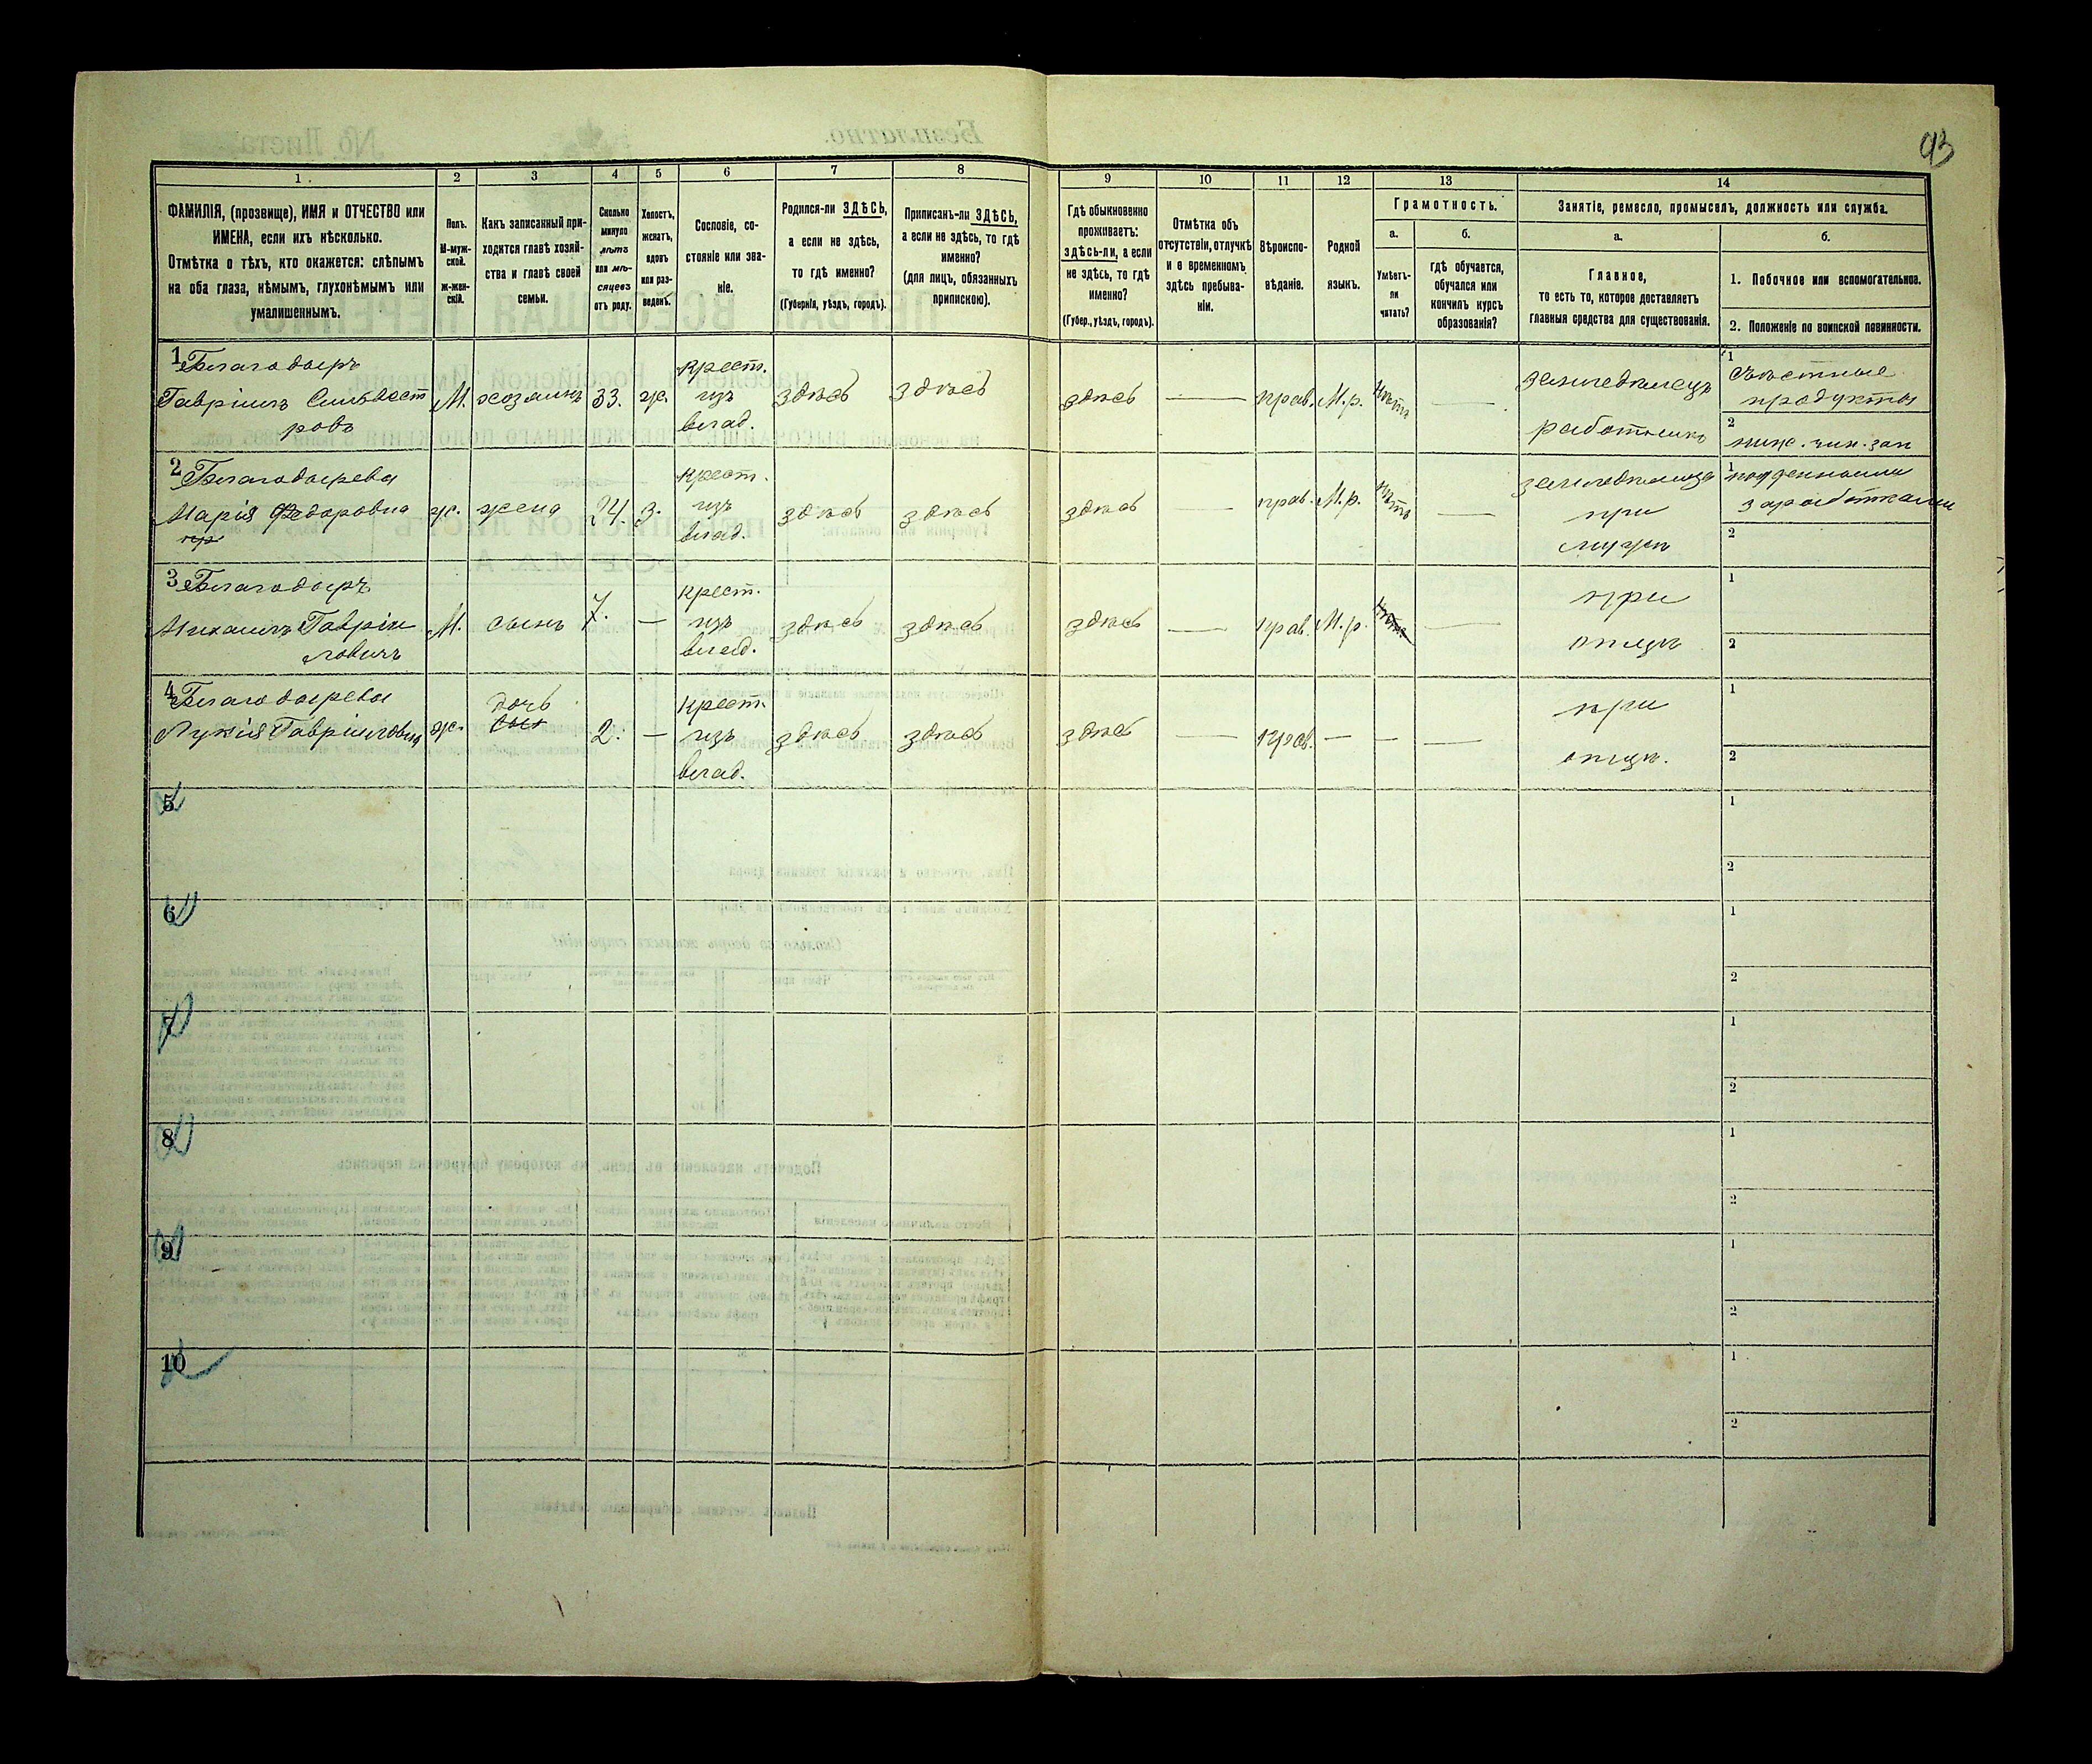 93
1.
2
3
4
5
6
7
8
9
10
11
12
13
14
ФАМИЛІЯ, (прозвище), ИМЯ и ОТЧЕСТВО или
ИМЕНА, если ихъ нѣсколько.
Отмѣтка о тѣхъ, кто окажется: слѣпымъ
на оба глаза, нѣмымъ, глухонѣмымъ или
умалишеннымъ.
Полъ.
М-муж-
ской.
Ж-жен-
скій.
Какъ записанный при-
ходится главѣ хозяй-
ства и главѣ своей
семьи.
Сколько
минуло
лѣтъ
или мѣ-
сяцевъ
отъ роду.
Холостъ,
женатъ,
вдовъ
или раз-
веденъ.
Сословіе, со-
стояніе или зва-
ніе.
Родился-ли ЗДѢСЬ,
а если не здѣсь,
то гдѣ именно?
(Губернія, уѣздъ, городъ).
Приписанъ-ли ЗДѢСЬ,
а если не здѣсь, то гдѣ
именно?
(для лицъ, обязанныхъ
припискою).
Гдѣ обыкновенно
проживаетъ:
здѣсь-ли, а если
не здѣсь, то гдѣ
именно?
(Губер., уѣздъ, городъ).
Отмѣтка объ
отсутствіи, отлучкѣ
и о временномъ
здѣсь пребыва-
ніи.
Вѣроиспо-
вѣданіе.
Родной
языкъ.
Грамотность.
а.
Умѣетъ-
ли
читать?
б.
гдѣ обучается,
обучался или
кончилъ курсъ
образованія?
Занятіе, ремесло, промыселъ, должность или служба.
а.
Главное,
то есть то, которое доставляетъ
главныя средства для существованія.
б.
1. Побочное или вспомогательное.
2. Положеніе по воинской повинности.
1 Благодыръ
Гавріилъ Сильвест
ровъ
М.
хозяинъ
33.
ж.
крест.
изъ
влад.
здѣсь
здѣсь
здѣсь
—
прав.
М.р.
нѣтъ
—
земледѣлецъ
работникъ
1
съѣстные
продукты
2
ниж. чин. зап
2 Благодырева
Марія Федоровна
ж.
жена
24.
З.
крест.
изъ
влад.
здѣсь
здѣсь
здѣсь
—
прав.
М.р.
нѣтъ
—
земледѣлица
при
мужѣ
1
поденными
заработками
2
3 Благодыръ
Михаилъ Гавріи
ловичъ
М.
сынъ
7.
—
крест.
изъ
влад.
здѣсь
здѣсь
здѣсь
—
прав.
М.р.
нѣтъ
—
при
отцѣ
1
2
4 Благодырева
Лукія Гавріиловна
ж.
дочь
сын
2.
—
крест.
изъ
влад.
здѣсь
здѣсь
здѣсь
—
прав.
—
—
—
при
отцѣ.
1
2
5
1
2
6
1
2
7
1
2
8
1
2
9
1
2
10
1
2